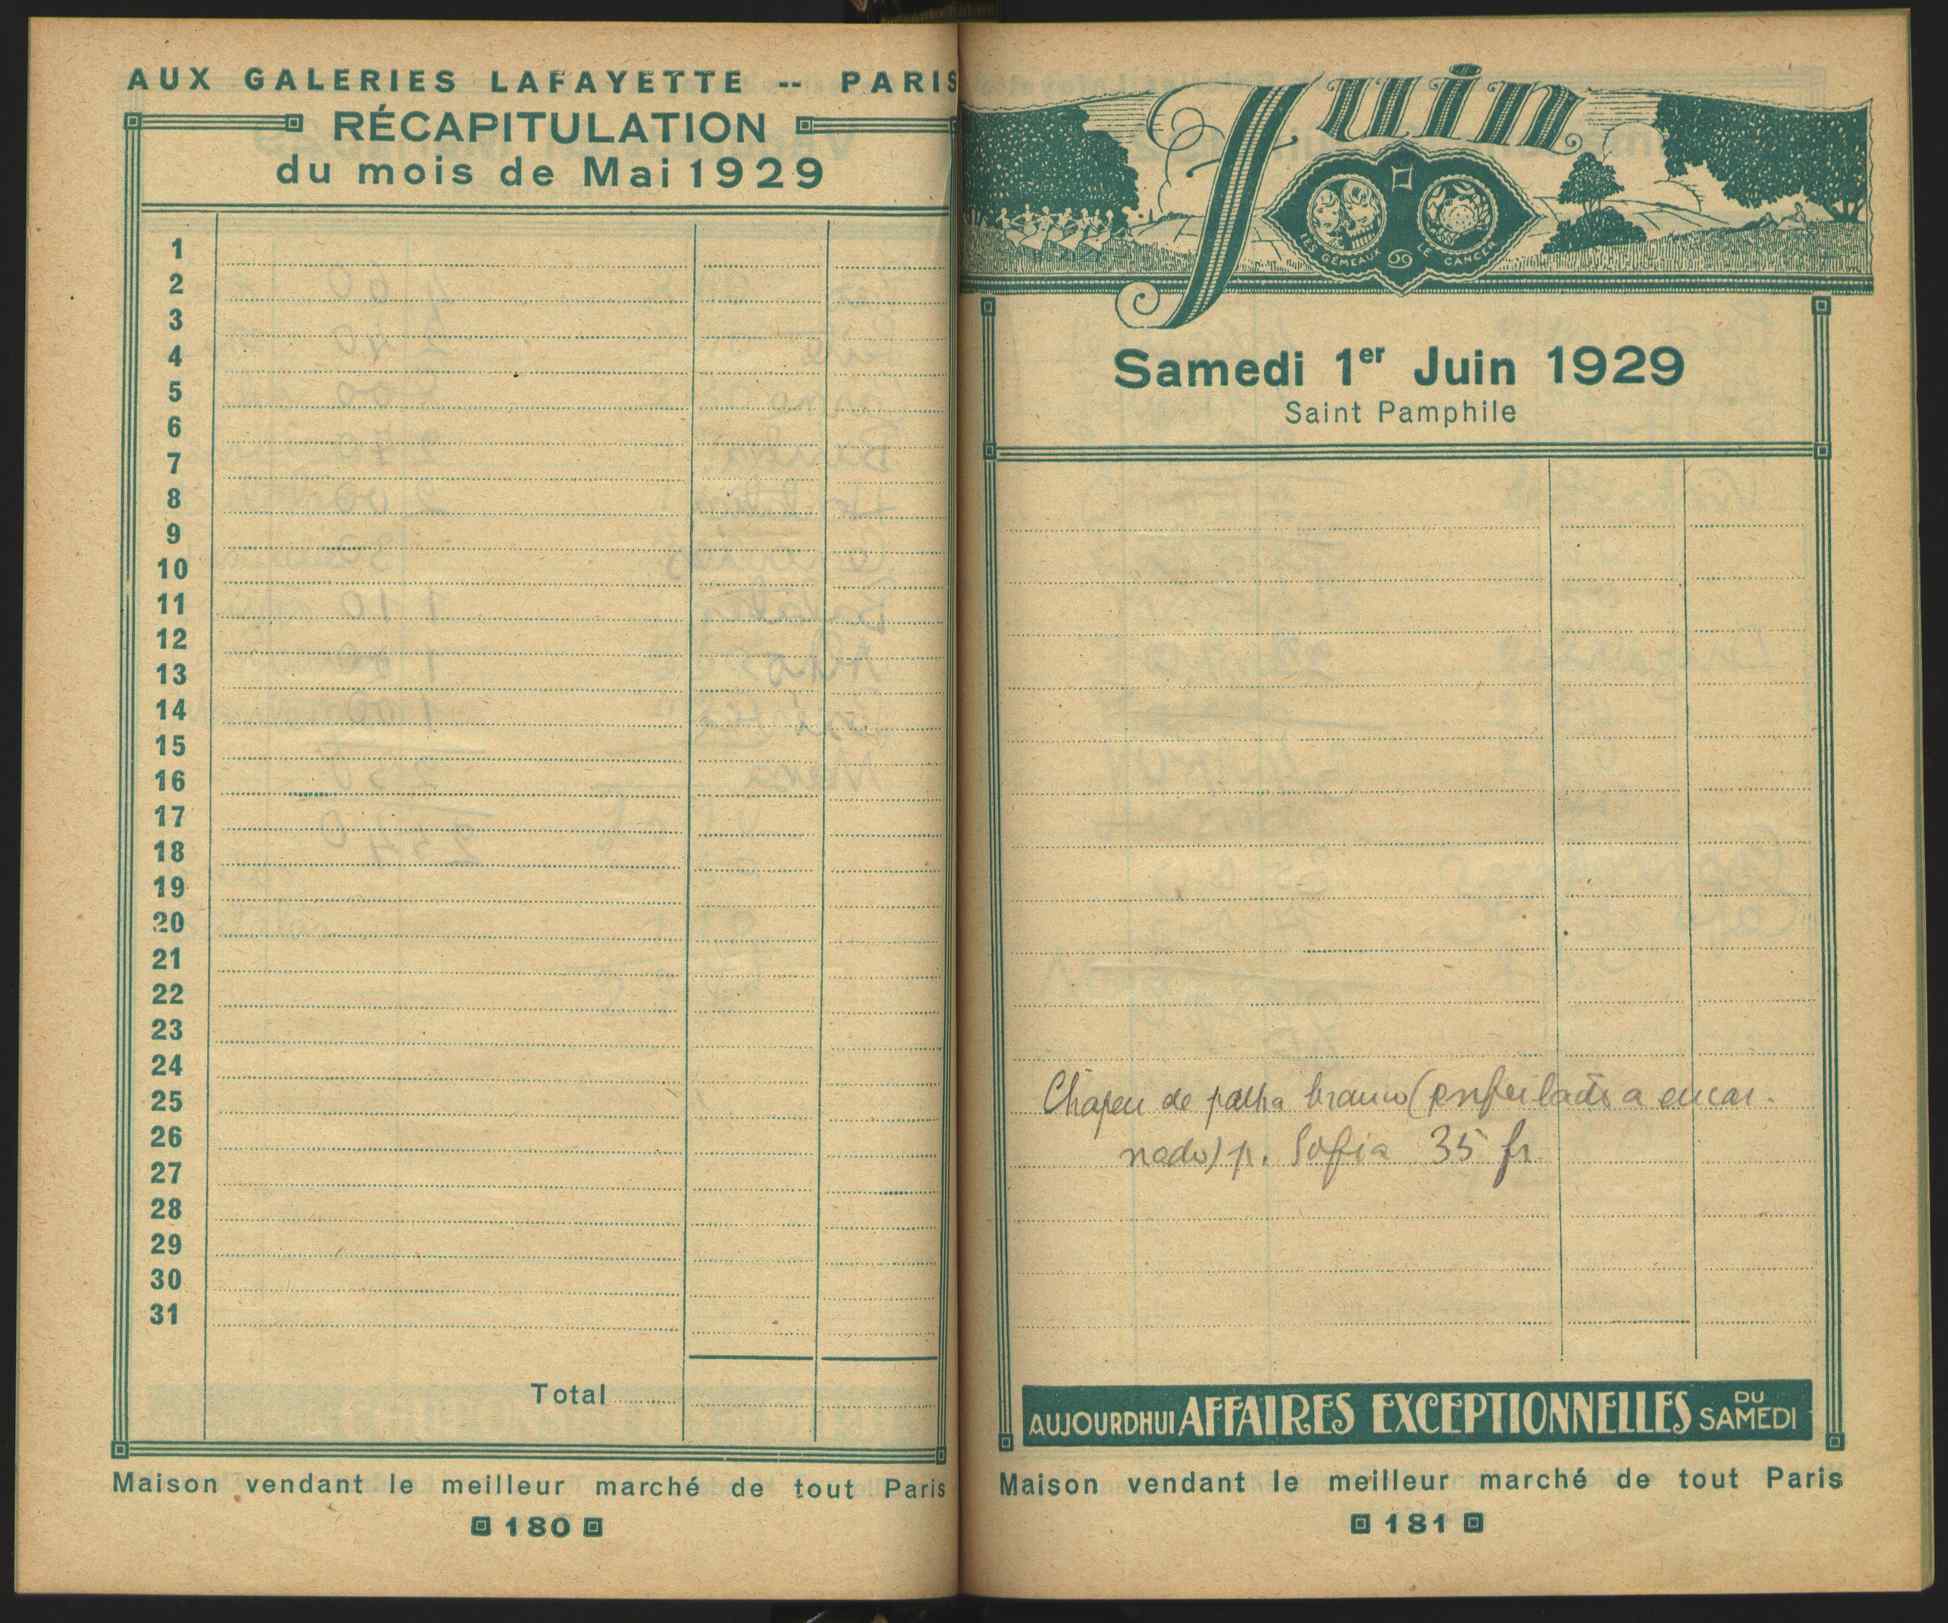 AUX GALERIES LAFAYETTE -- PARIS
RÉCAPITULATION
du mois de Mai 1929
1
2
3
4
5
6
7
8
9
10
11
12
13
14
15
16
17
18
19
20
21
22
23
24
25
26
27
28
29
30
31
Total
Maison vendant le meilleur marché de tout Paris
180
Juin
LES GÉMEAUX 69 LE CANCER
Samedi 1er Juin 1929
Saint Pamphile
Chapeu de palha branco (enfeitado a encar-
nado) p. Sofia 35 fr
AUJOURDHUI AFFAIRES EXCEPTIONNELLES DU SAMEDI
Maison vendant le meilleur marché de tout Paris
181